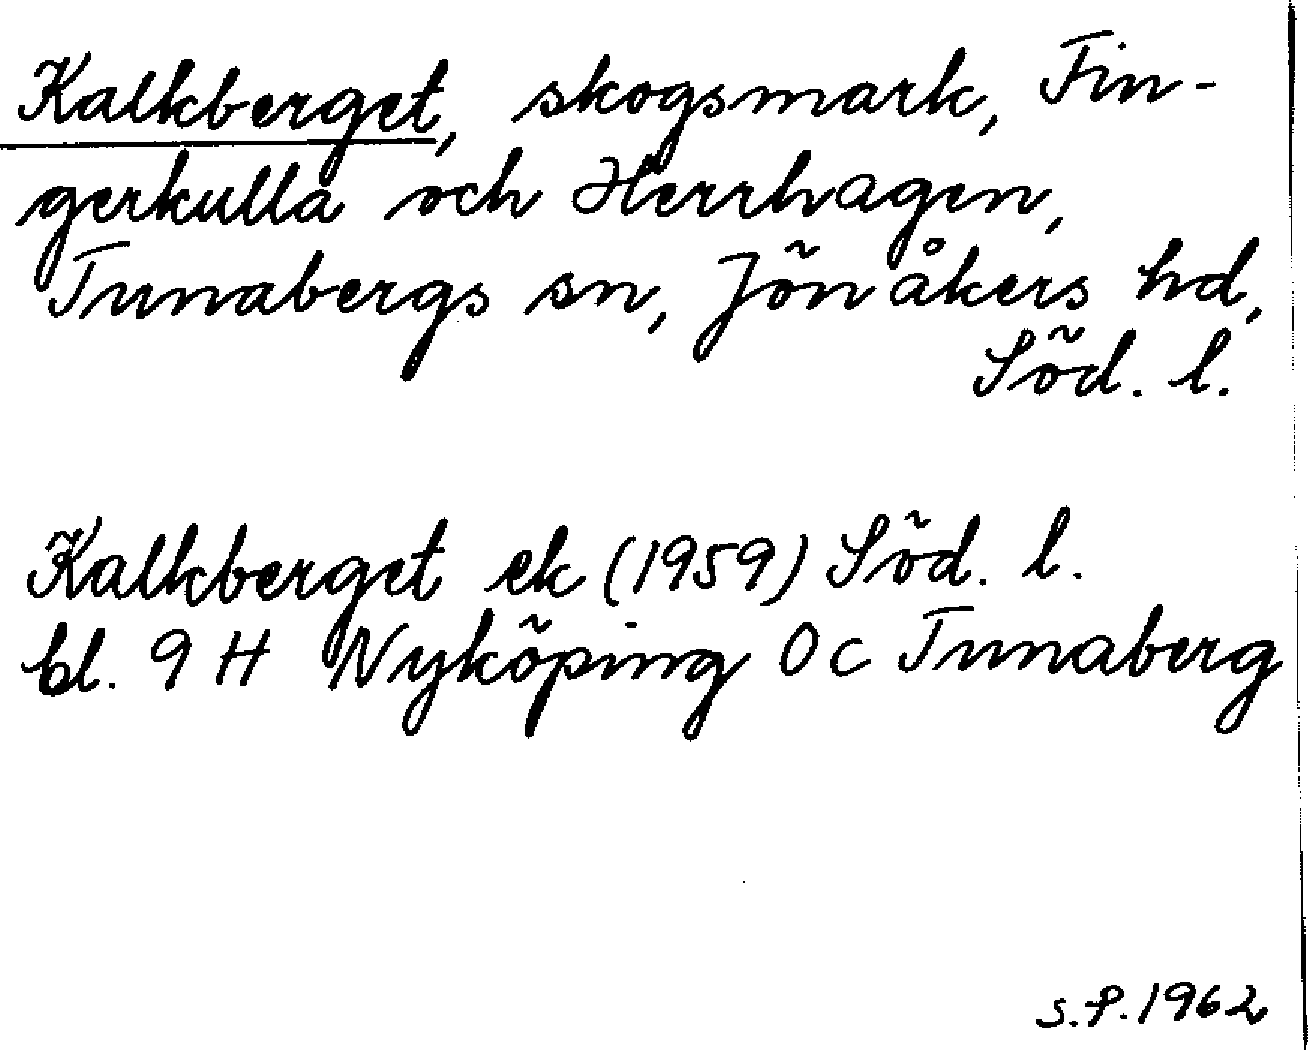 Kalkberget, skogsmark, Fin-
gerkulla och Herrhagen,
Tunabergs sn, Jönåkers hd,
Söd. l.
Kalkberget ek (1959) Söd. l.
bl. 9 H Nyköping 0 c Tunaberg
S.P. 1962